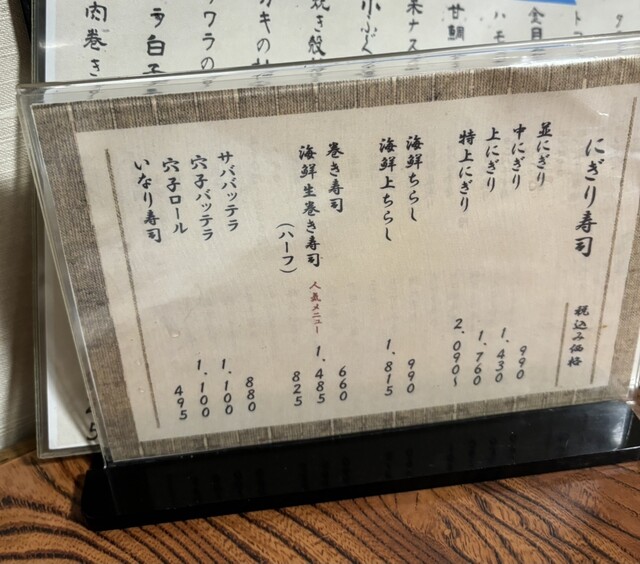 にぎり寿司
税込み価格
並にぎり 990
中にぎり 1,430
上にぎり 1,760
特上にぎり 2,090〜
海鮮ちらし 990
海鮮上ちらし 1,815
巻き寿司 660
海鮮生巻き寿司 人気メニュー 1,485
(ハーフ) 825
サババッテラ 880
穴子バッテラ 1,100
穴子ロール 1,100
いなり寿司 495
甘鯛
カキの
肉巻き